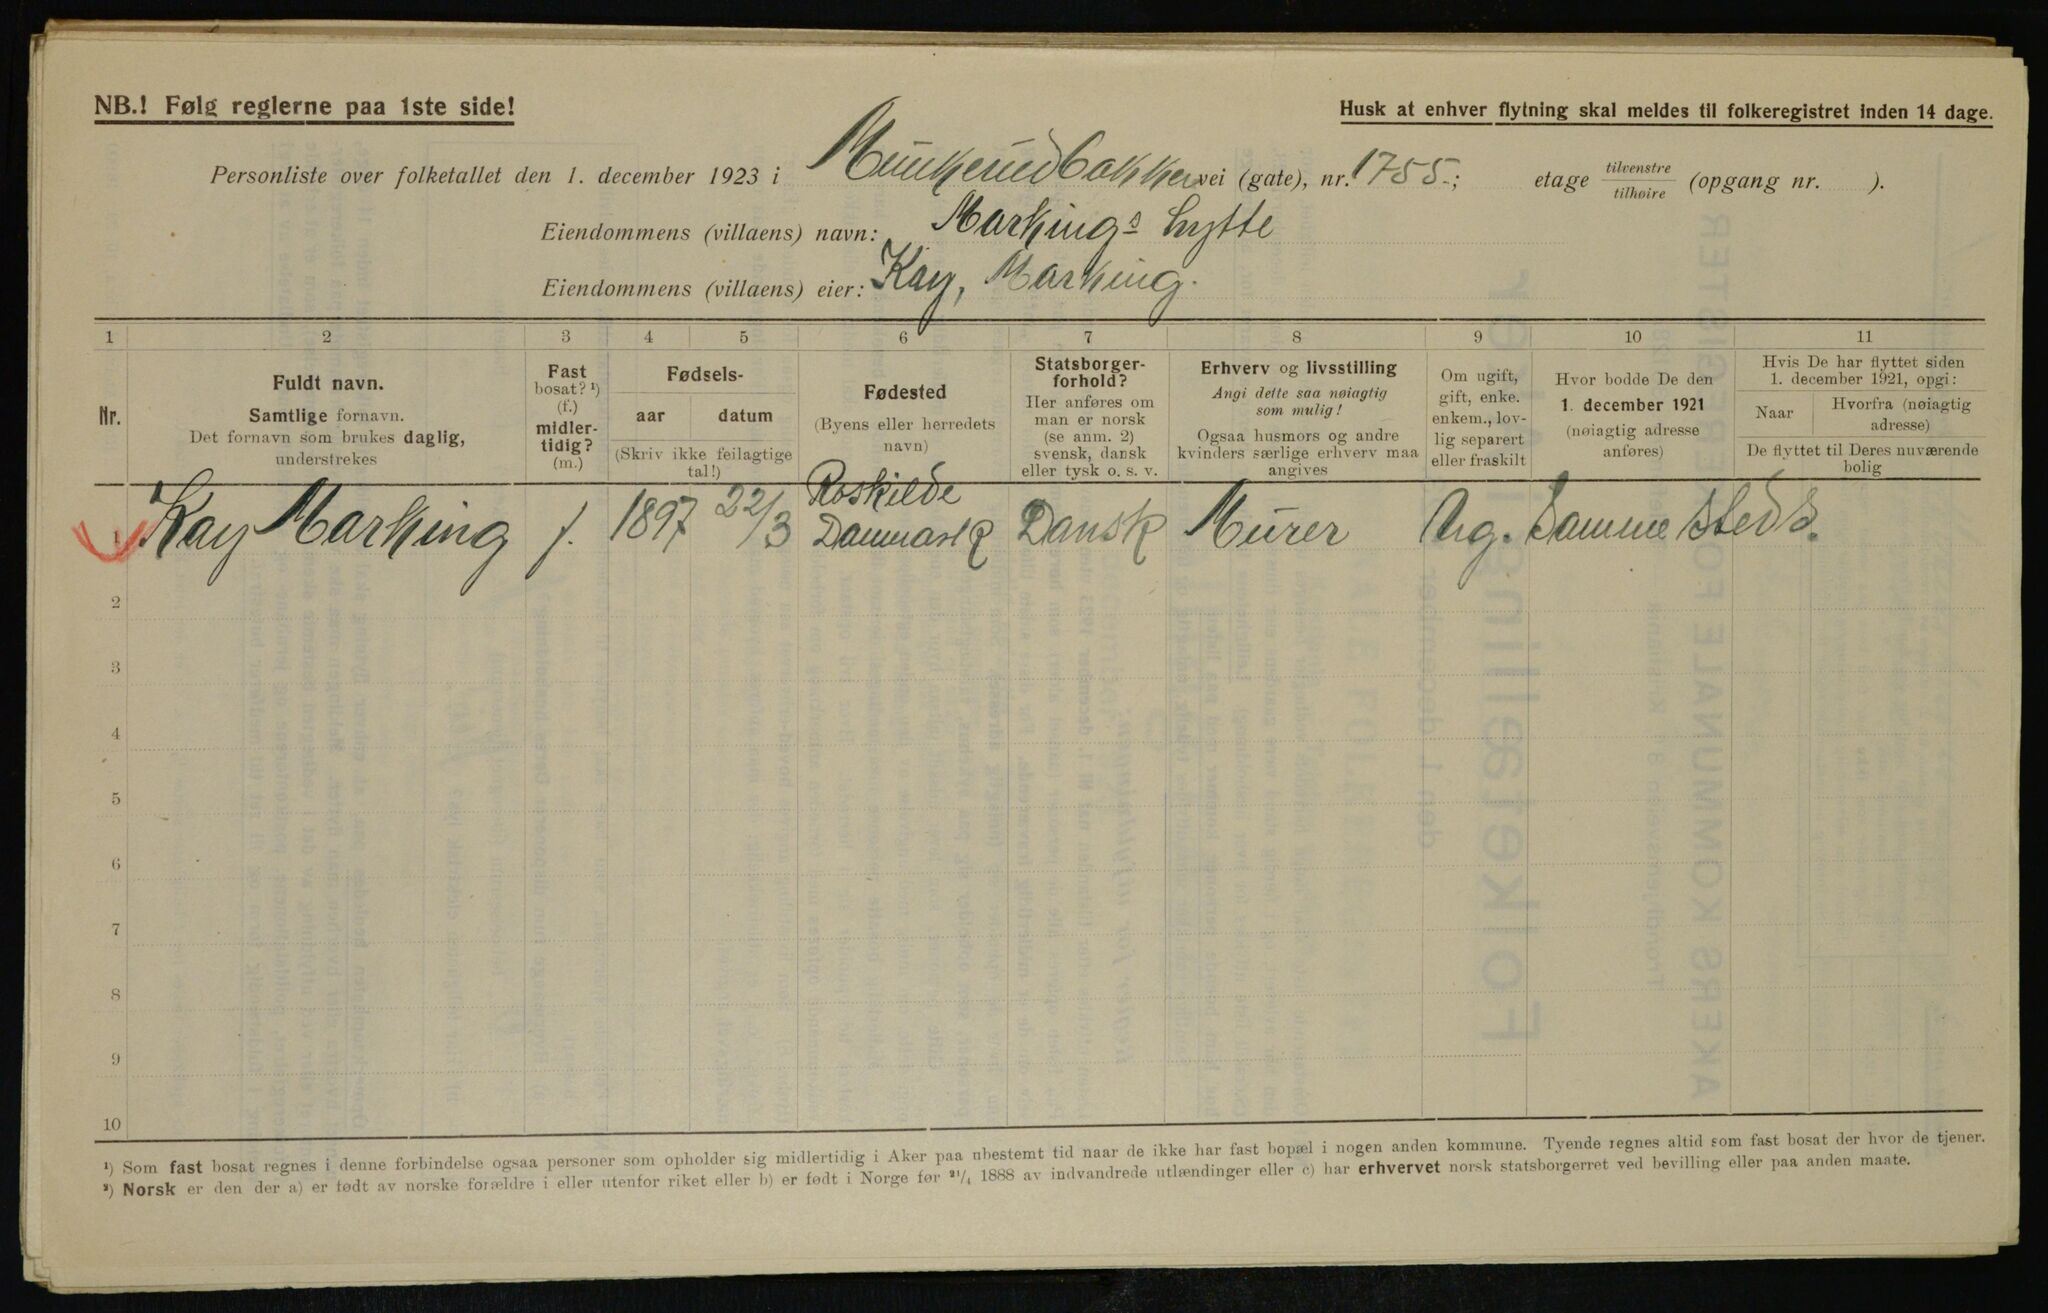 NB.! Følg reglerne paa 1ste side!
Husk at enhver flytning skal meldes til folkeregistret inden 14 dage.
Personliste over folketallet den 1. december 1923 i Munkerudbakken vei (gate), nr. 1755.; etage tilvenstre tilhøire (opgang nr. ).
Eiendommens (villaens) navn: Markings hytte
Eiendommens (villaens) eier: Kay, Marking.
1 2 3 4 5 6 7 8 9 10 11
Nr.
Fuldt navn.
Samtlige fornavn.
Det fornavn som brukes daglig,
understrekes
Fast
bosat? ¹)
(f.)
midler-
tidig?
(m.)
Fødsels-
aar datum
(Skriv ikke feilagtige
tal!)
Fødested
(Byens eller herredets
navn)
Statsborger-
forhold?
Her anføres om
man er norsk
(se anm. 2)
svensk, dansk
eller tysk o. s. v.
Erhverv og livsstilling
Angi dette saa nøiagtig
som mulig!
Ogsaa husmors og andre
kvinders særlige erhverv maa
angives
Om ugift,
gift, enke.
enkem., lov-
lig separert
eller fraskilt
Hvor bodde De den
1. december 1921
(nøiagtig adresse
anføres)
Hvis De har flyttet siden
1. december 1921, opgi:
Naar
Hvorfra (nøiagtig
adresse)
De flyttet til Deres nuværende
bolig
1 Kay Marking f. 1897 22/3 Roskilde Danmark Dansk Murer Ug. Samme steds.
2
3
4
5
6
7
8
9
10
¹) Som fast bosat regnes i denne forbindelse ogsaa personer som opholder sig midlertidig i Aker paa ubestemt tid naar de ikke har fast bopæl i nogen anden kommune. Tyende regnes altid som fast bosat der hvor de tjener.
²) Norsk er den der a) er født av norske forældre i eller utenfor riket eller b) er født i Norge før ²¹/₄ 1888 av indvandrede utlændinger eller c) har erhvervet norsk statsborgerret ved bevilling eller paa anden maate.